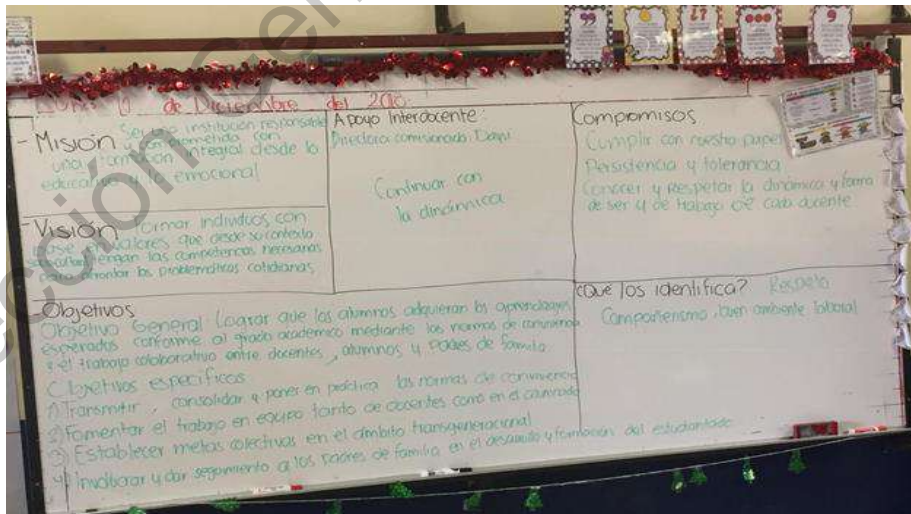 de Diciembre del
- Misión Ser una institución responsable
y comprometida con
una formación integral desde lo
educativo y lo emocional
- Visión Formar individuos con
base en valores que desde su contexto
tengan las competencias necesarias
para afrontar las problemáticas cotidianas
Apoyo Interdocente:
Directora comisionada: Dani
Continuar con
la dinámica
Compromisos
Cumplir con nuestro papel
Persistencia y tolerancia
Conocer y Respetar la dinámica y forma
de ser y de trabajo de cada docente
- Objetivos
Objetivo General Lograr que los alumnos adquieran los aprendizajes
esperados conforme al grado académico mediante las normas de convivencia
y el trabajo colaborativo entre docentes, alumnos y Padres de familia.
Objetivos específicos
1) Transmitir, consolidar y poner en práctica las normas de convivencia
2) Fomentar el trabajo en equipo tanto de docentes como en el alumnado
3) Establecer metas colectivas en el ámbito transgeneracional
4) Involucrar y dar seguimiento a los Padres de familia en el desarrollo y formación del estudiantado
¿Qué los identifica? Respeto
Compañerismo, buen ambiente laboral